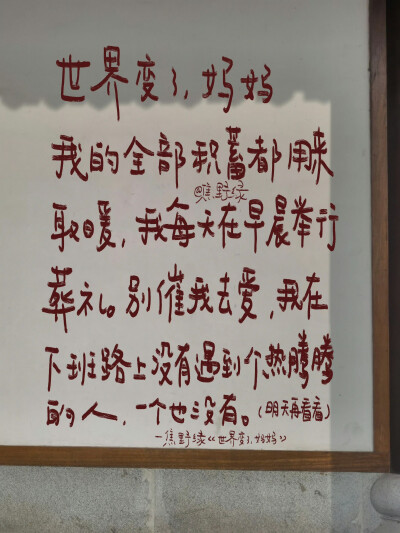 世界变了,妈妈
我的全部积蓄都用来
焦野绿
取暖,我每天在早晨举行
葬礼。别催我去爱,我在
下班路上没有遇到个热腾腾
的人,一个也没有。(明天再看看)
—焦野绿《世界变了,妈妈》